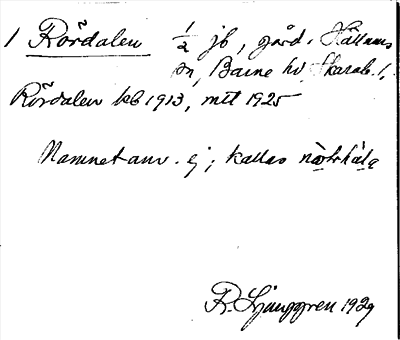 1 Rördalen 1/2 jb, gård i Hällums
sn, Barne hd, Skarab. l.
Rördalen kb 1913, mtl 1925
Namnet anv. ej; kallas
R. Ljunggren 1929